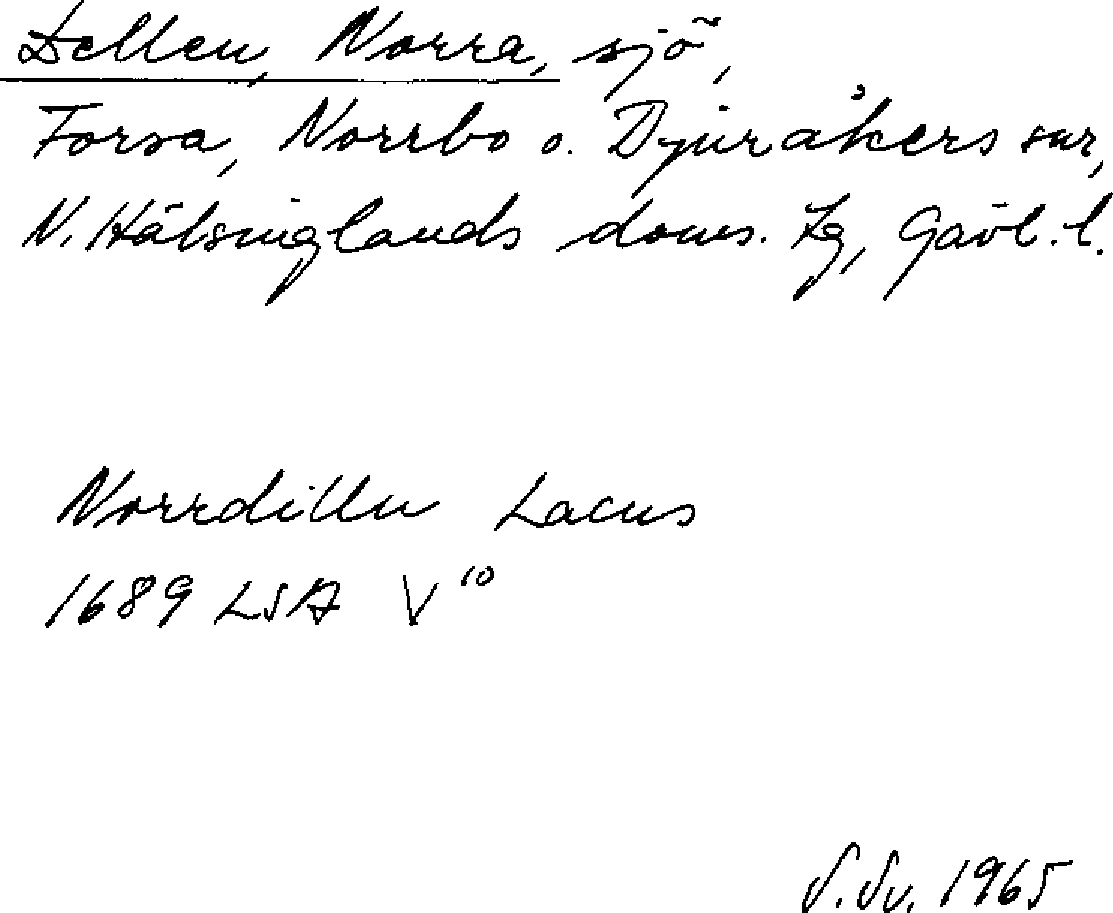 Dellen, Norra, sjö,
Forsa, Norrbo o. Djuråkers snr,
N. Hälsinglands doms. Lg, Gävl. l.
Norrdilln Lacus
1689 LSA V¹⁰
S. Sv. 1965